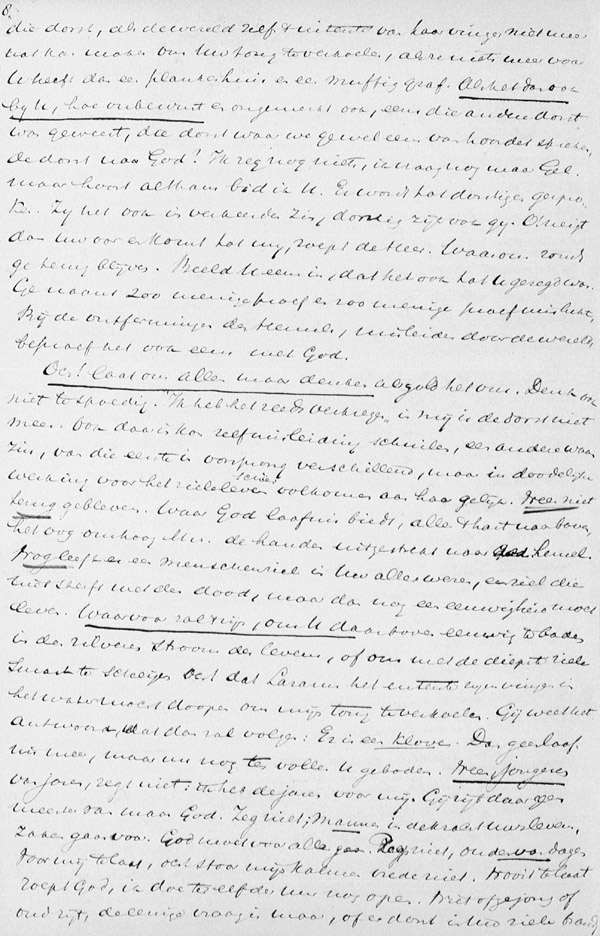 8.
die dorst, als de wereld zelf het uiterste van haar vinger niet meer
nat kan maken om Uw tong te verkoelen, als ze niets meer voor
U heeft dan een plankenhuis en een muffig graf. Als het dan ook
by U, hoe onbewust en ongemerkt ook, eens die andere dorst
was geweest, die dorst waar we gewel eens van hoordet spreken,
de dorst naar God? Ik zeg nog niets, ik vraag nog maar Gel.
maar hoort althans bid ik U. Er wordt tot dorstigen gespro
ken. Zy het ook in verkeerden zin, dorstig zijt ook gy. O! neigt
dan uw oor en komt tot my, roept de Heer. Waarom zoudt
ge terug blijven. Beeld U eens in, dat het ook tot U gezegd was.
Ge naamt zoo menige proef en zoo menige proef mislukte,
By de ontferminger des Hemels, misleiden door de wereld,
beproef het ook eens met God.
Och! laat ons allen maar denken als gold het ons. Denk ook
niet te spoedig. "Ik heb het reeds verkregen" in mij is de dorst niet
meer. Ook daarin kan zelfmisleiding schuilen, een andere waan
zin, van die eerste in oorsprong verschillend, maar in doodelijke
werking voor het zieleleven schier volkomen aan haar gelijk. Nee niet
terug gebleven. Waar God laafnis biedt, alle het hart naar boven,
het oog omhoog en de handen uitgestrekt naar den hemel.
Nog leeft er een menschenziel in Uw aller wezen, een ziel die
niet sterft met den dood, maar dan nog een eeuwigheid moet
leven. Waarvoor zal het zijn, om U daarboven eeuwig te baden
in de zilveren stroom des levens, of om met de diepste ziele
smart te schreien och! dat Lazarus het uiterste zyner vinger in
het water mocht doopen om mijn tong te verkoelen. Gij weet het
antwoord, wat dan zal volgen: Er is een klove. Dan geen laaf
nis meer, maar nu nog ten volle U geboden. Nee, jongeren
van jaren, zegt niet: ik heb de jaren voor mij. Gij zijt daar geen
meester van maar God. Zeg niet; Mannen in de kracht uws levens,
zaken gaan voor. God moet voor alles gaan. Zeg niet, ouden van dagen
voor mij te laat, och! stoor mijn kalme vrede niet. Nooit te laat
roept God, ik doe ter elfder ure nog open. Niet of ge jong of
oud zijt, de eenige vraag is maar, of er dorst in Uw ziele brandt